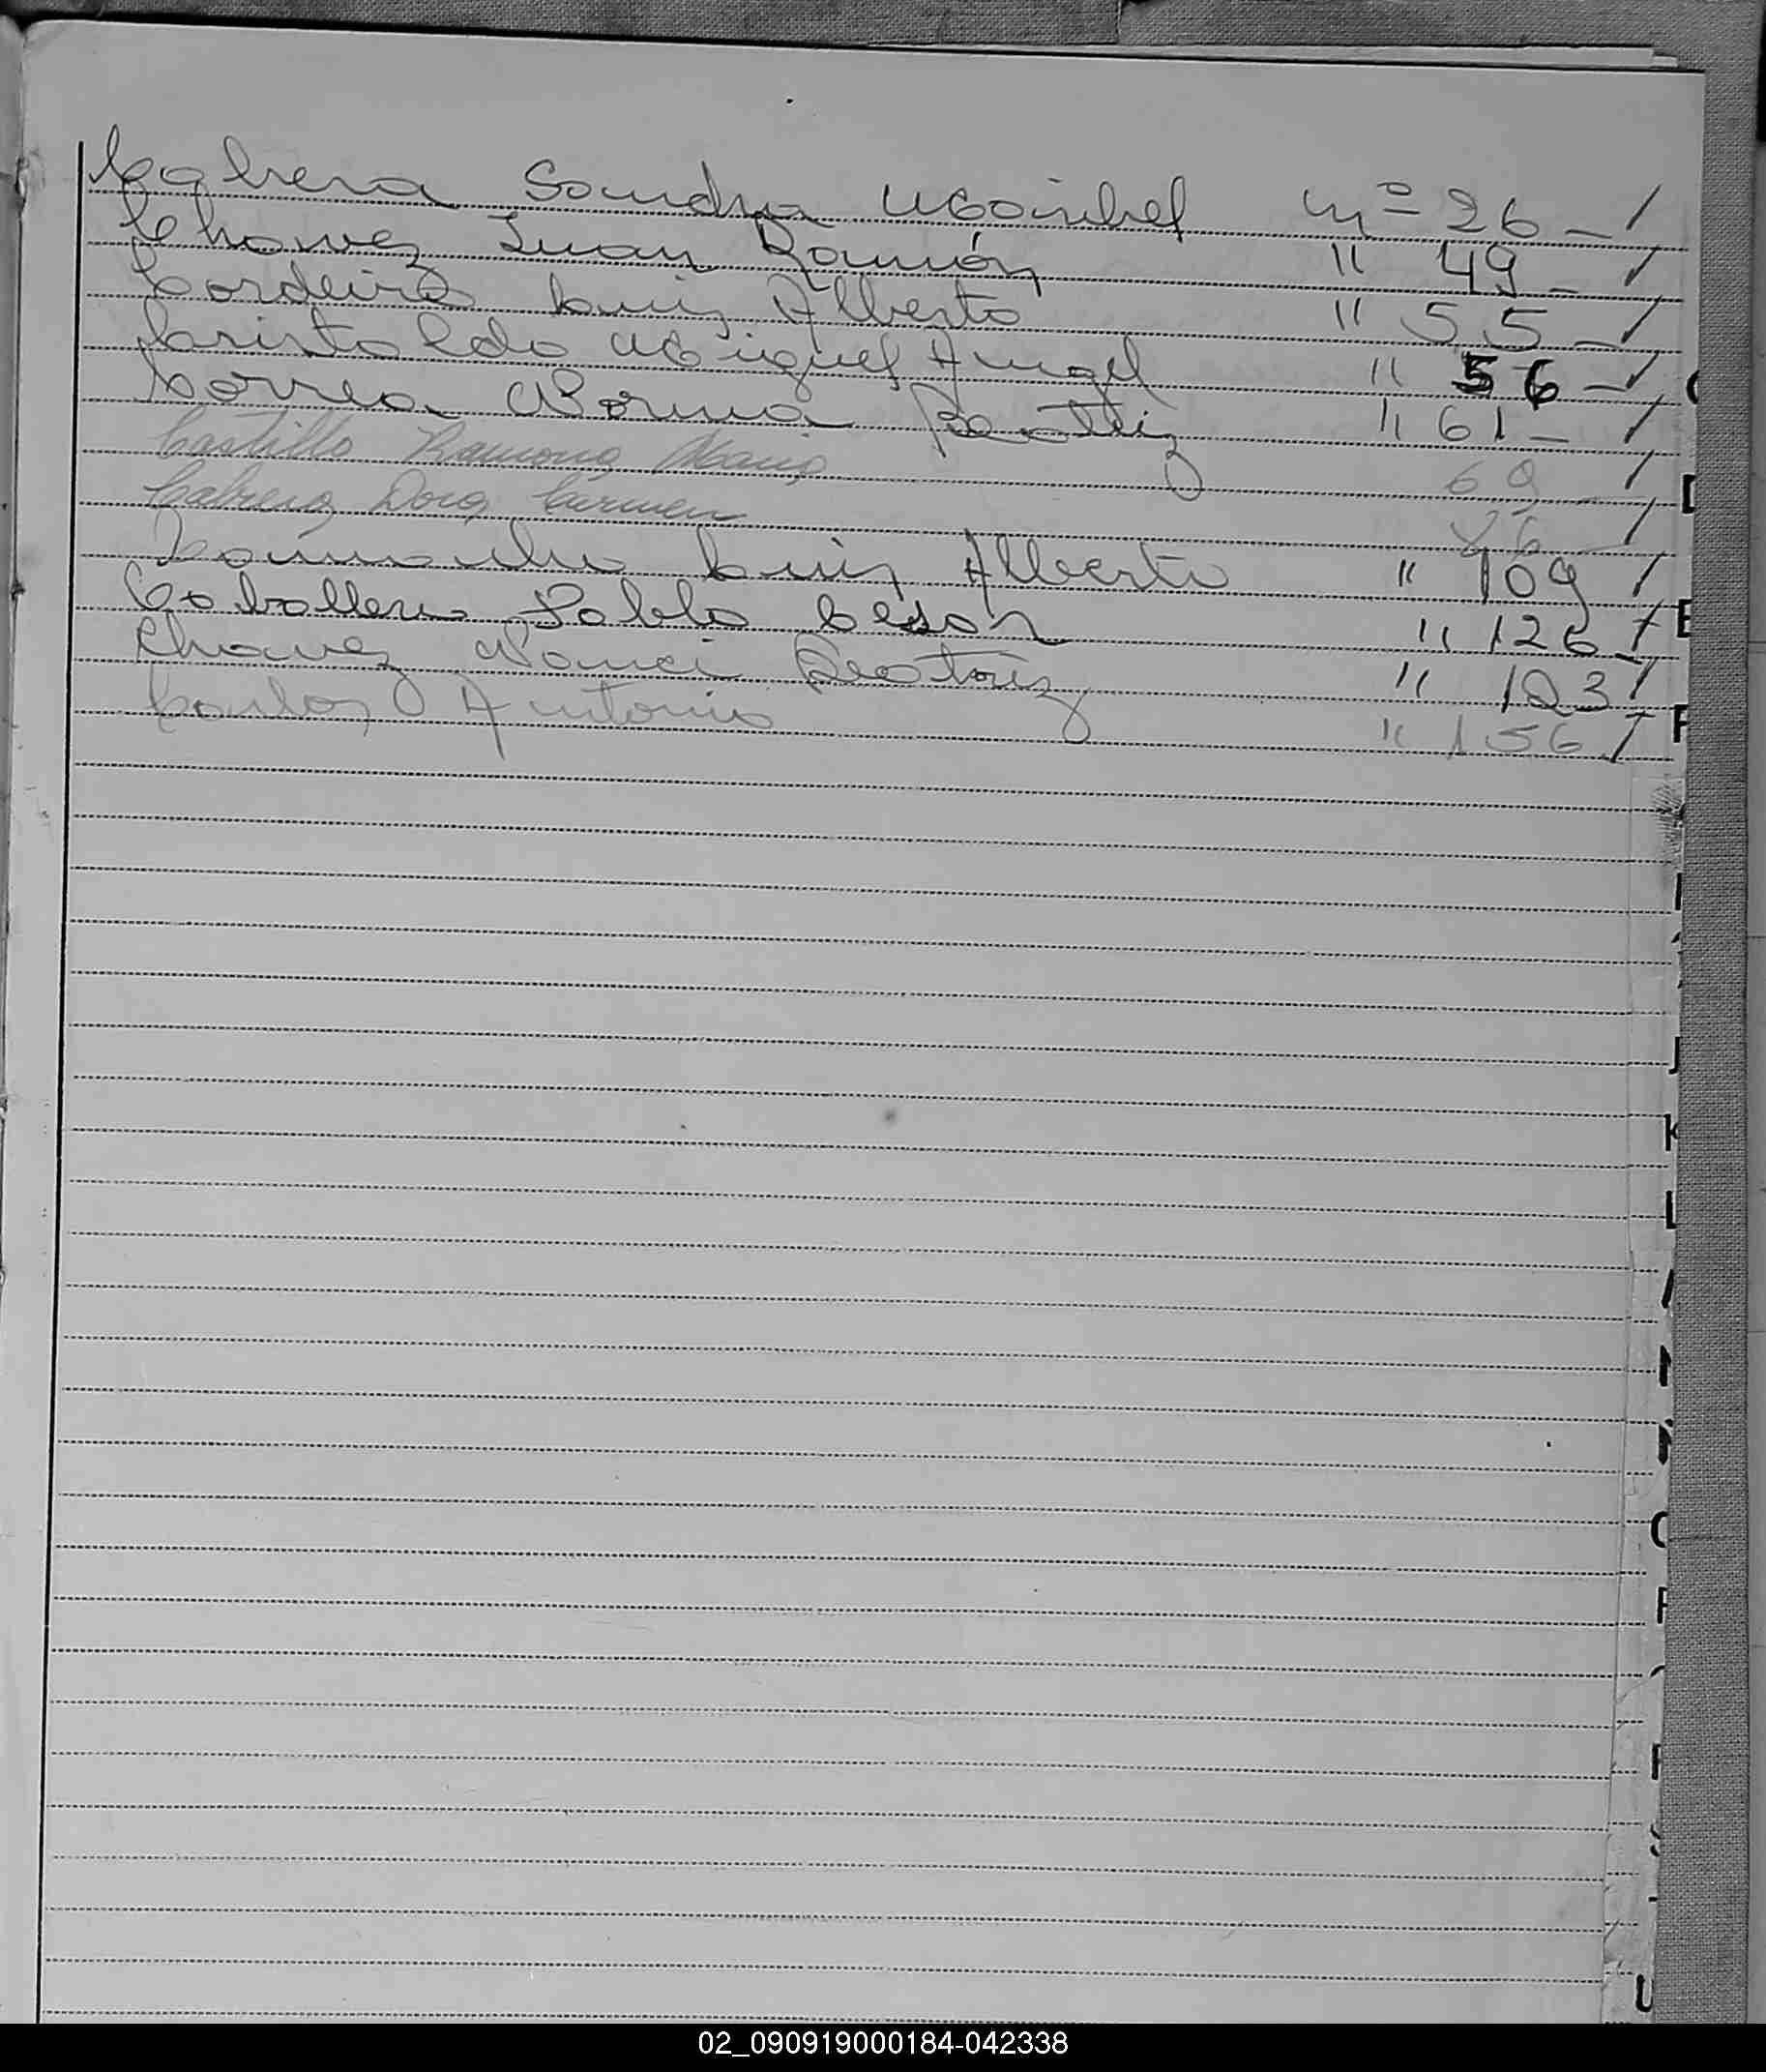 Cabrera Sandra Maribel nº 26 - /
Chavez Juan Ramón " 49 - /
Cordeiro Luis Alberto " 55 - /
Cristaldo Miguel Angel " 56 - /
Correa Norma Beatriz " 61 - /
Castillo Ramona Maria 69 - /
Cabrera Dora Carmen 86 - /
Camacho Luis Alberto " 109 /
Caballero Pablo Cesar " 126 - /
Chavez Nanci Beatriz " 123 /
Carlos Antonio " 156 /
D
E
F
J
K
L
O
P
R
S
U
02_090919000184-042338